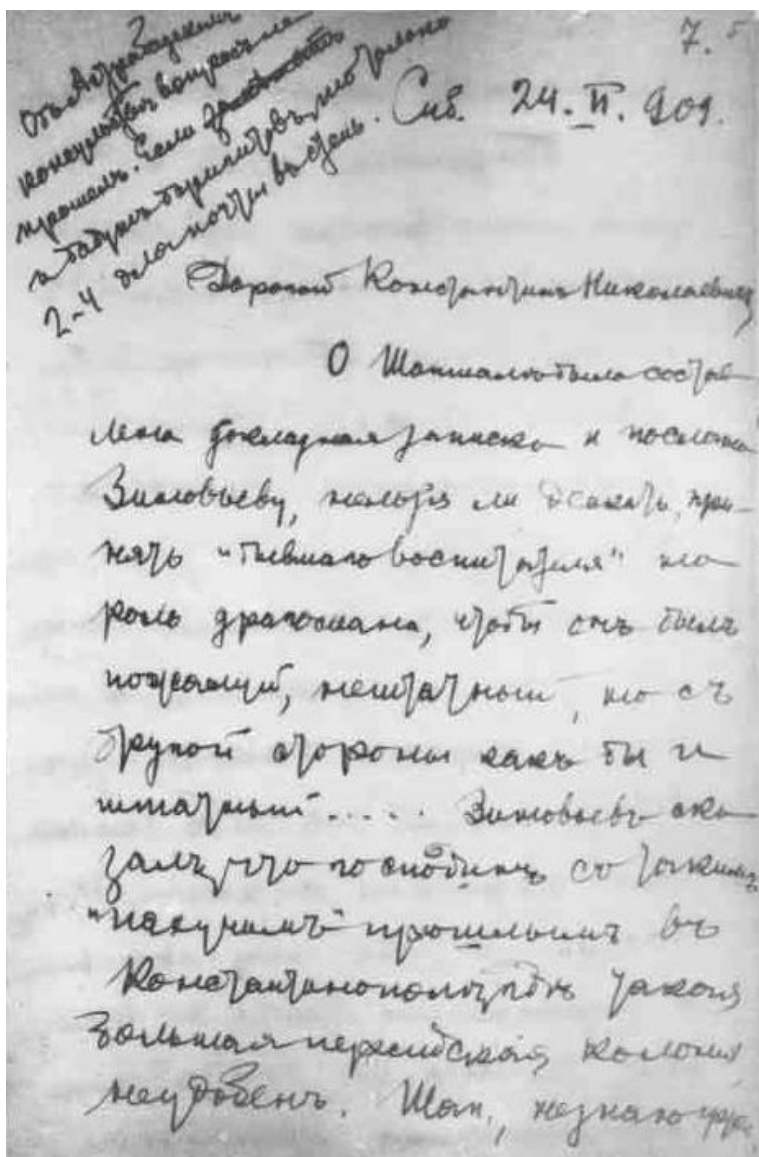 7.
Отъ Астрабадскимъ
консульствъ вопросъ на
прошелъ. Если
и будутъ
2-4 въ степь.
Спб. 24.II.909.
Дорогой Константинъ Николаевичъ,
О Шапшалѣ была состав-
лена докладная записка и послана
Зиновьеву, нельзя ли де сказать, при-
нять "бывшаго воспитателя" на
роль драгомана, чтобы онъ былъ
нештатный, но съ
другой стороны какъ бы и
штатный..... Зиновьевъ ска-
залъ, что господинъ со такимъ
"пахучимъ" прошлымъ въ
Константинополѣ, гдѣ такая
большая персидская колонія,
неудобенъ. Шап., не знаю